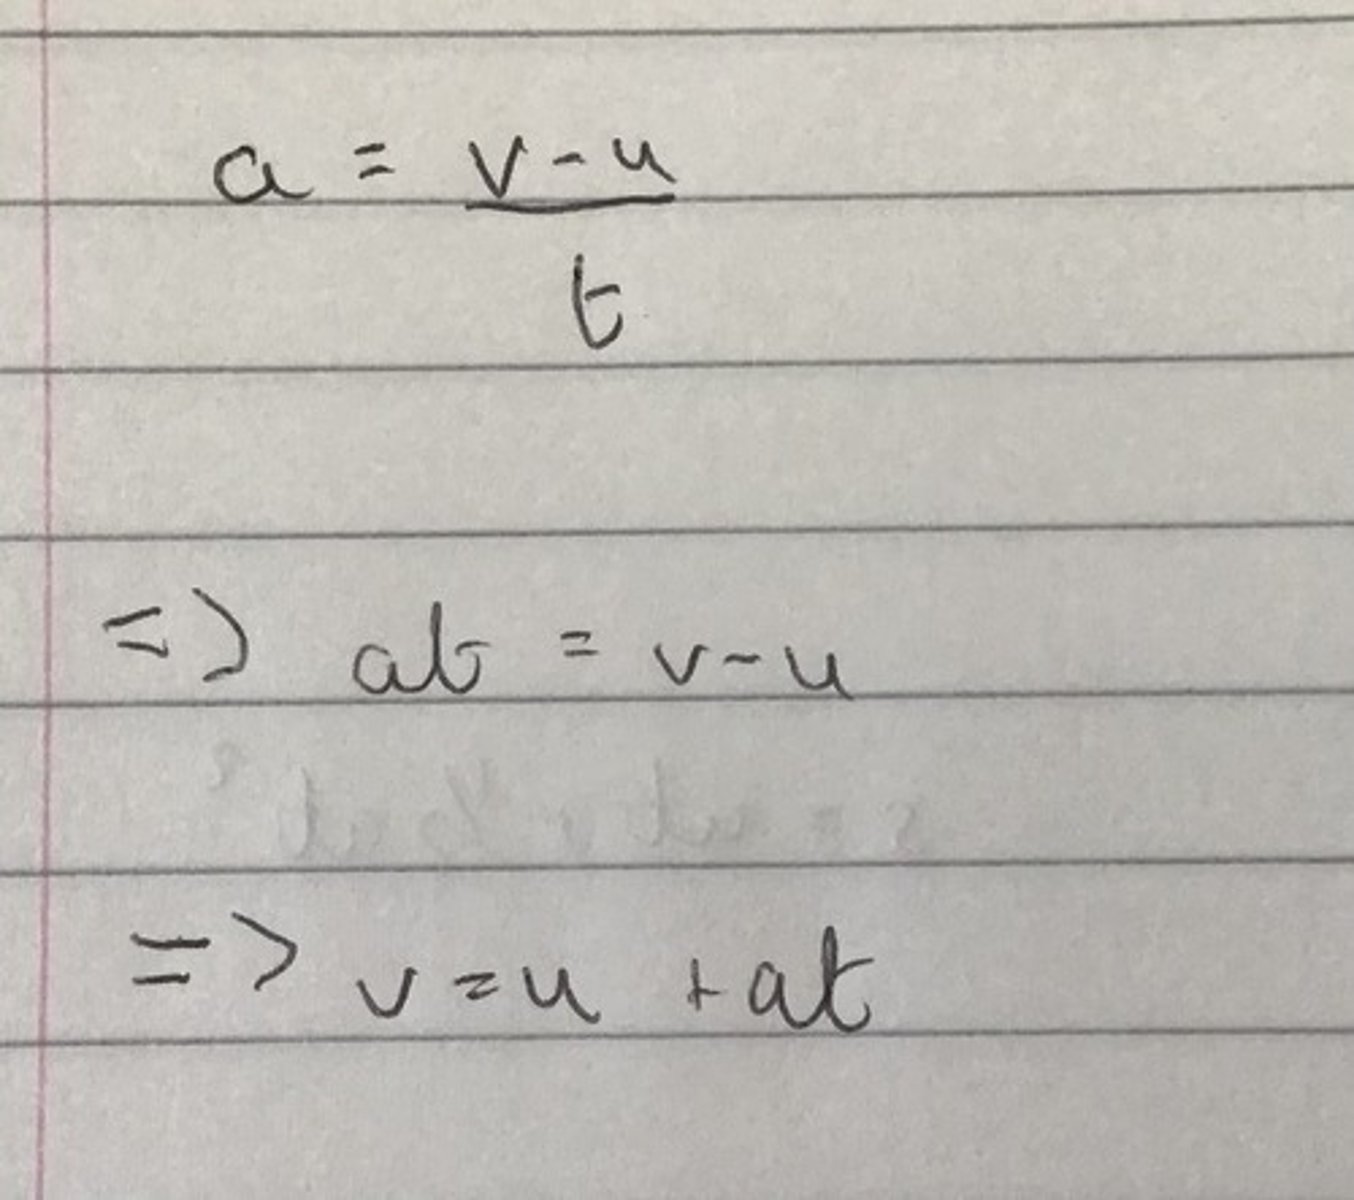 a = v - u
t
=> at = v - u
=> v = u + at